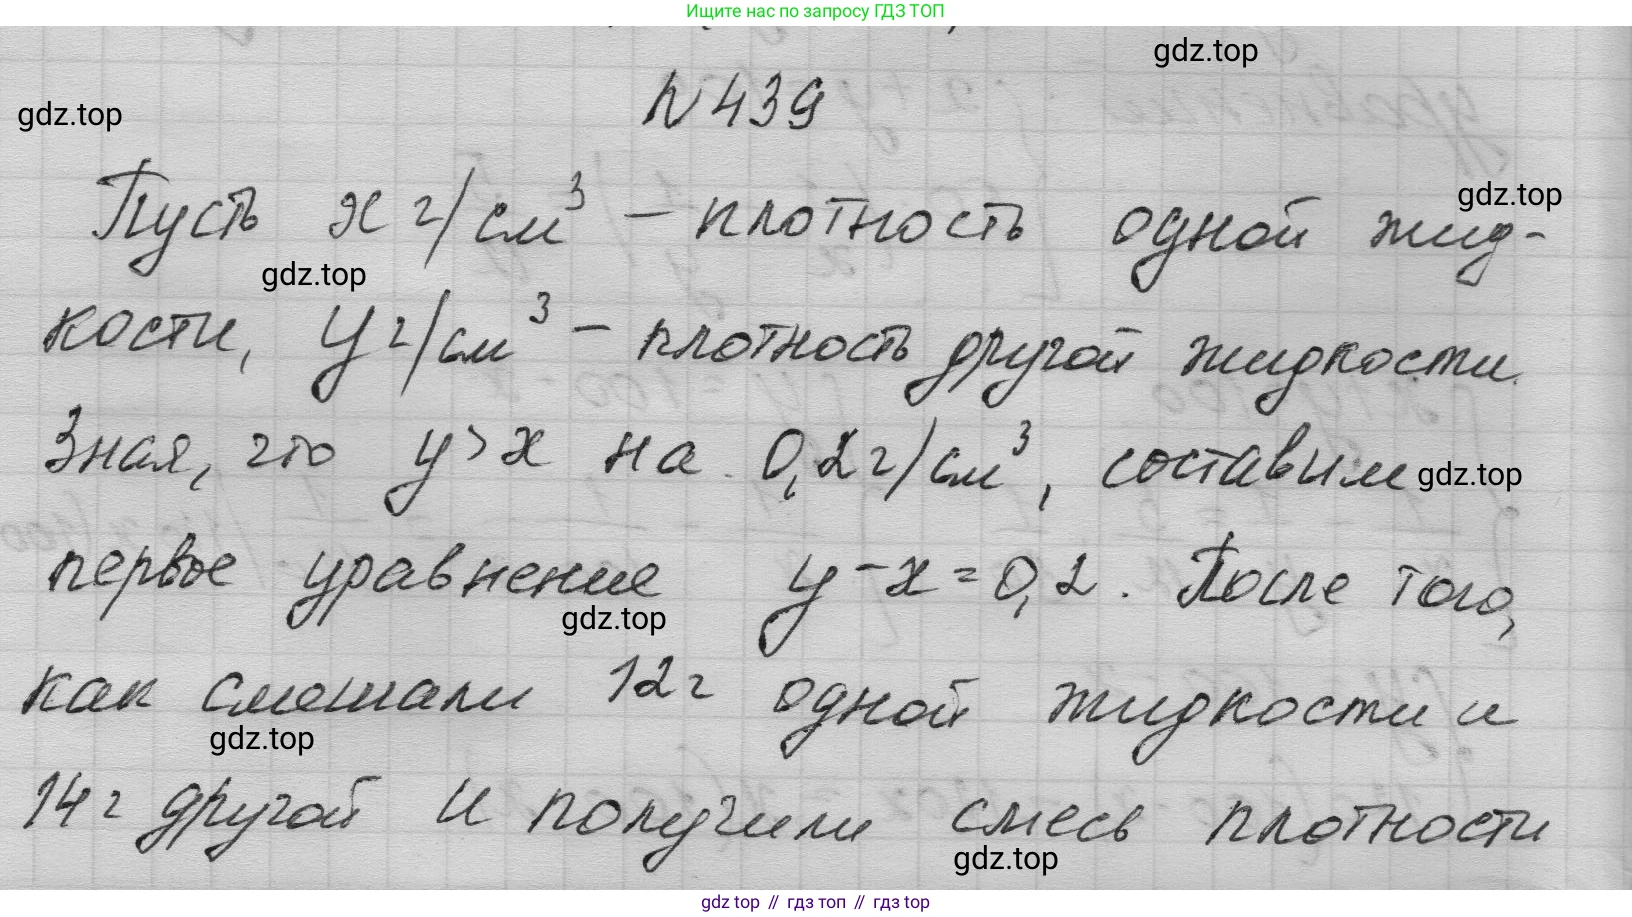 Ищите нас по запросу ГДЗ ТОП
gdz.top
N 439
gdz.top
gdz.top
Пусть x г/см³ – плотность одной жид-
gdz.top
кости, y г/см³ – плотность другой жидкости.
Зная, что y > x на 0,2 г/см³, составим
gdz.top
первое уравнение y – x = 0,2. После того,
gdz.top
как смешали 12 г одной жидкости и
gdz.top
14 г другой и получили смесь плотности
gdz.top
gdz top // гдз топ // гдз top